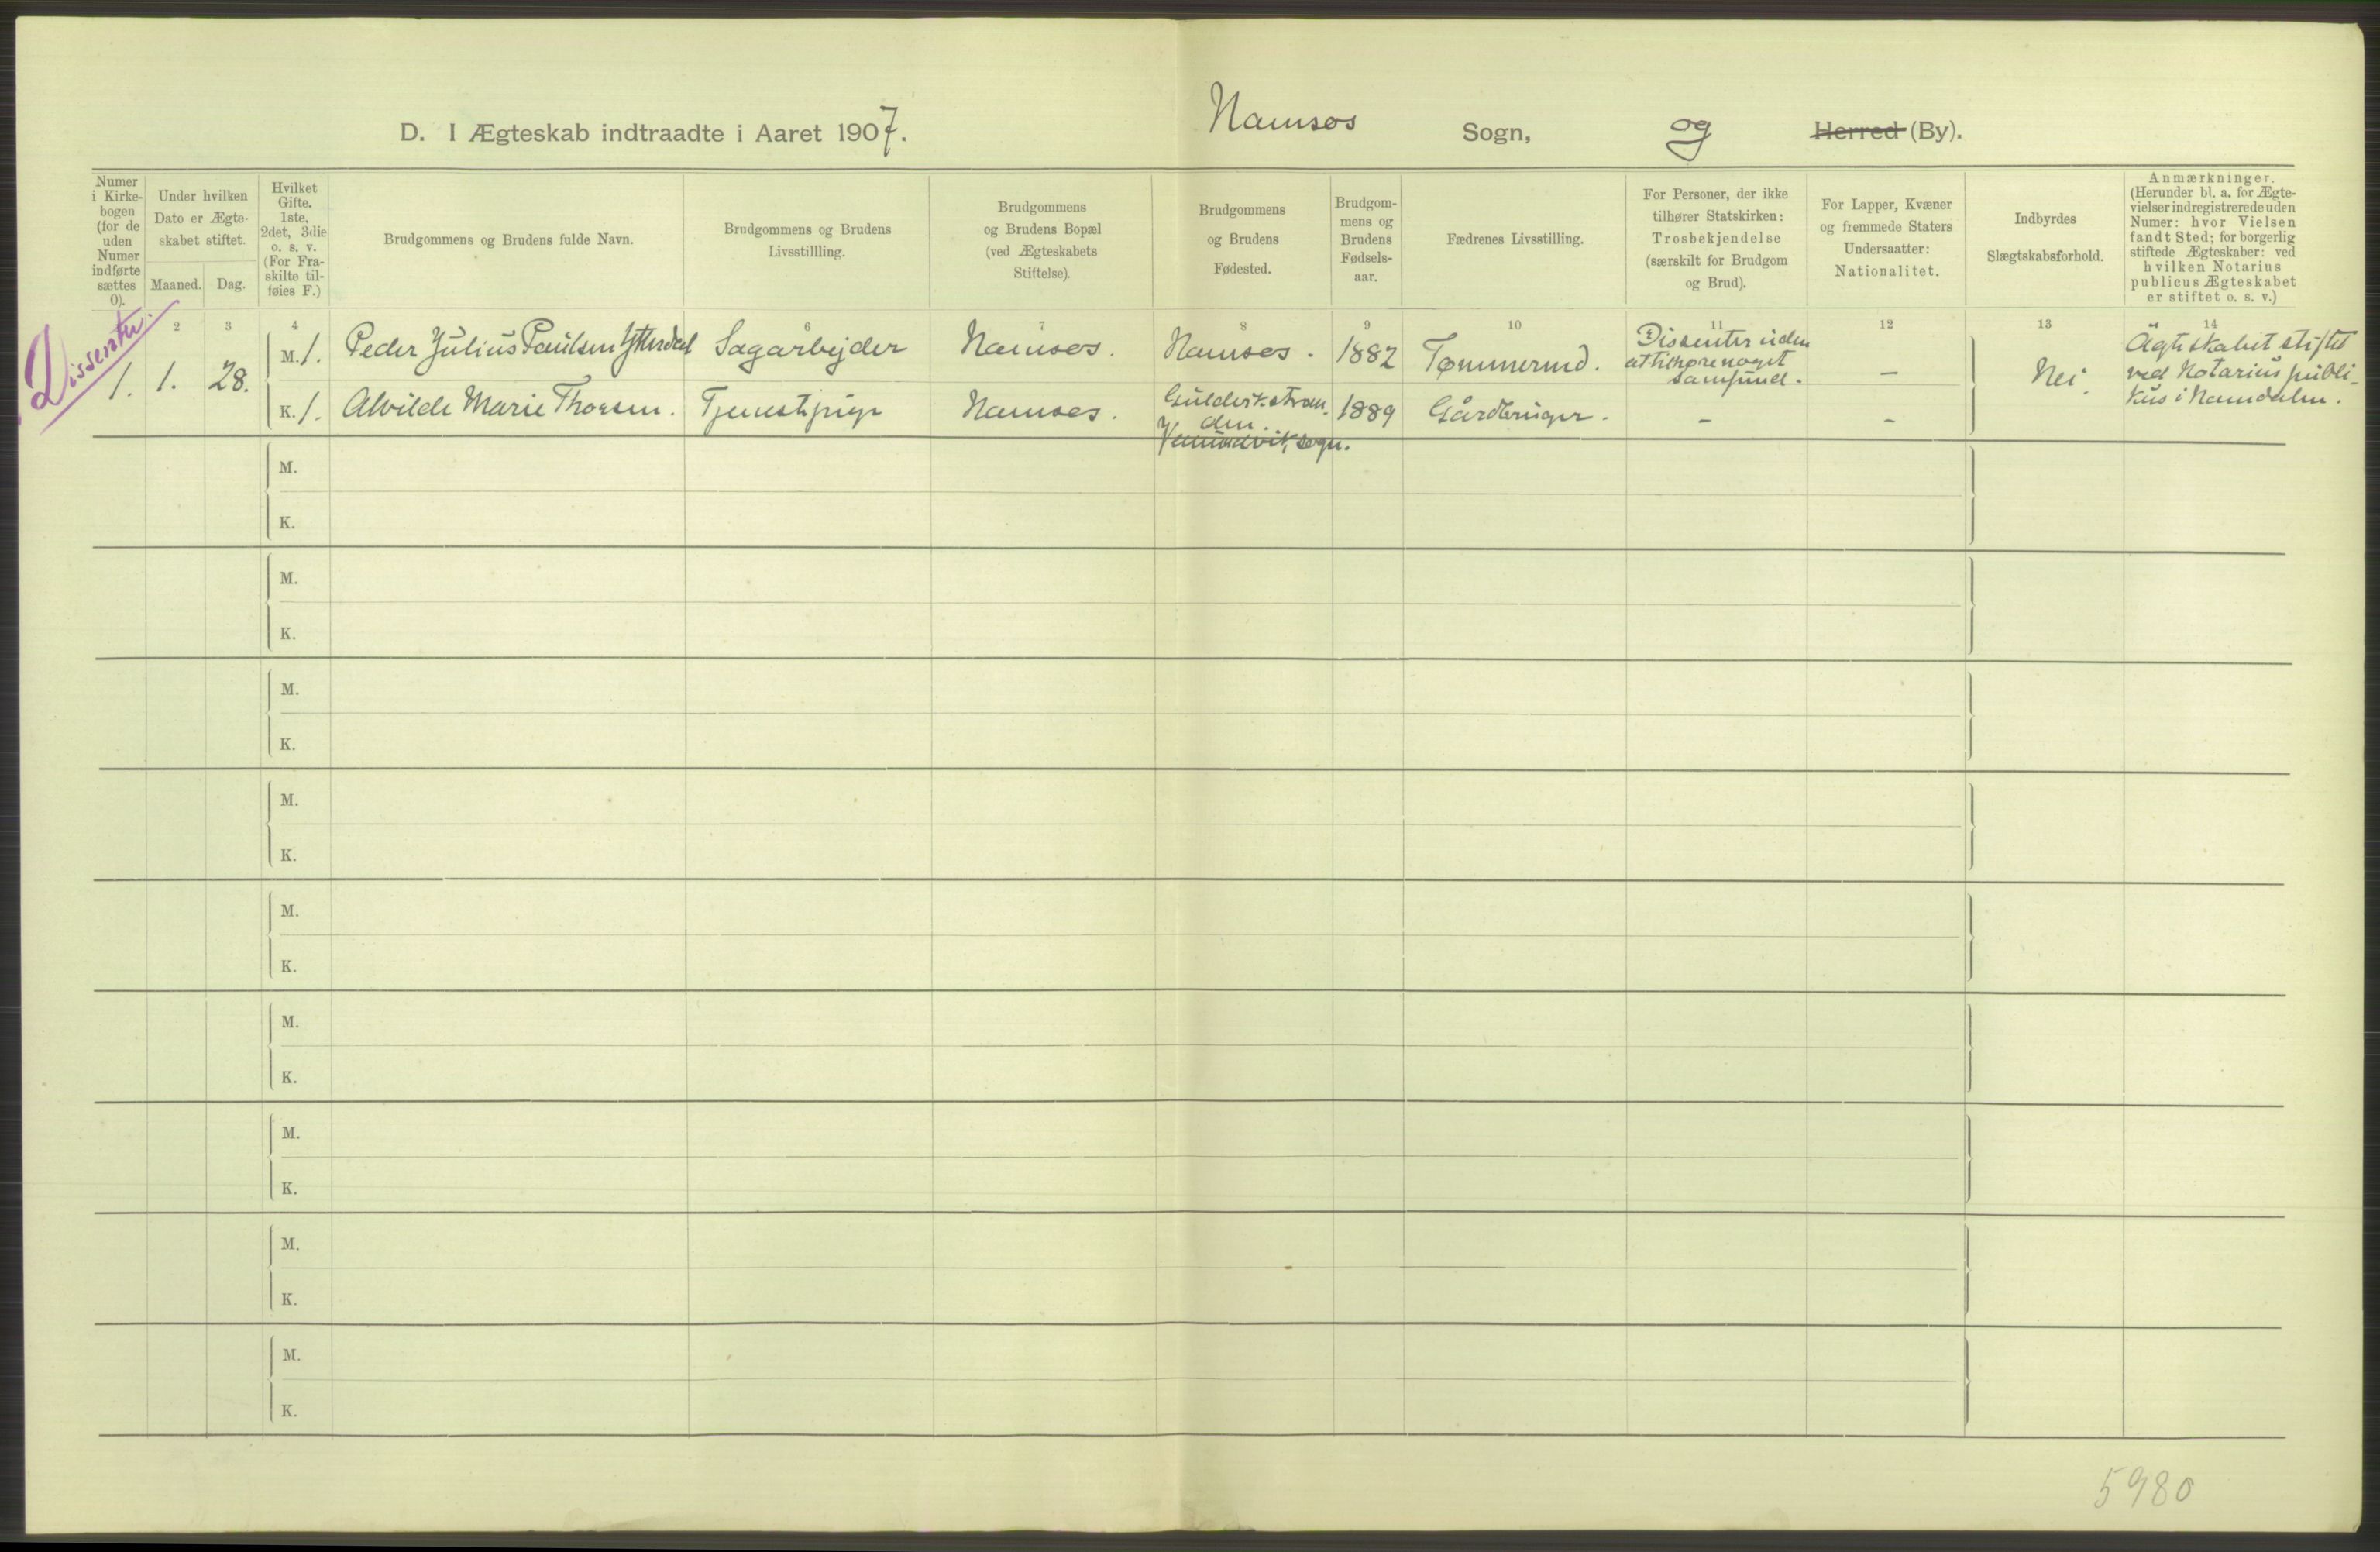 D. I Ægteskab indtraadte i Aaret 1907. Namsos Sogn, og Herred (By).
Numer i Kirkebogen (for de uden Numer indførte sættes 0).
Under hvilken Dato er Ægteskabet stiftet.
Maaned. Dag.
Hvilket Gifte. 1ste, 2det, 3die o. s. v. (For Fraskilte tilføies F.)
Brudgommens og Brudens fulde Navn.
Brudgommens og Brudens Livsstillling.
Brudgommens og Brudens Bopæl (ved Ægteskabets Stiftelse).
Brudgommens og Brudens Fødested.
Brudgommens og Brudens Fødselsaar.
Fædrenes Livsstilling.
For Personer, der ikke tilhører Statskirken: Trosbekjendelse (særskilt for Brudgom og Brud).
For Lapper, Kvæner og fremmede Staters Undersaatter: Nationalitet.
Indbyrdes Slægtskabsforhold.
Anmærkninger. (Herunder bl. a. for Ægtevielser indregistrerede uden Numer: hvor Vielsen fandt Sted; for borgerlig stiftede Ægteskaber: ved hvilken Notarius publicus Ægteskabet er stiftet o. s. v.)
2 3 4 6 7 8 9 10 11 12 13 14
Dissenter.
1. 1. 28.
M. 1. Peder Julius Paulsen Ytterdal Sagarbejder Namsos. Namsos. 1882 Tømmermd. Dissenter uden at tilhøre noget samfund. —
K. 1. Alvilde Marie Thorsen. Tjenestpige Namsos. Guldvikstranden. Vemundvik sogn. 1889 Gårdbruger. - -
Nei.
Ægteskabet stiftet
ved Notarius publi-
kus i Namdalen.
M.
K.
M.
K.
M.
K.
M.
K.
M.
K.
M.
K.
M.
K.
M.
K.
M.
K.
5980